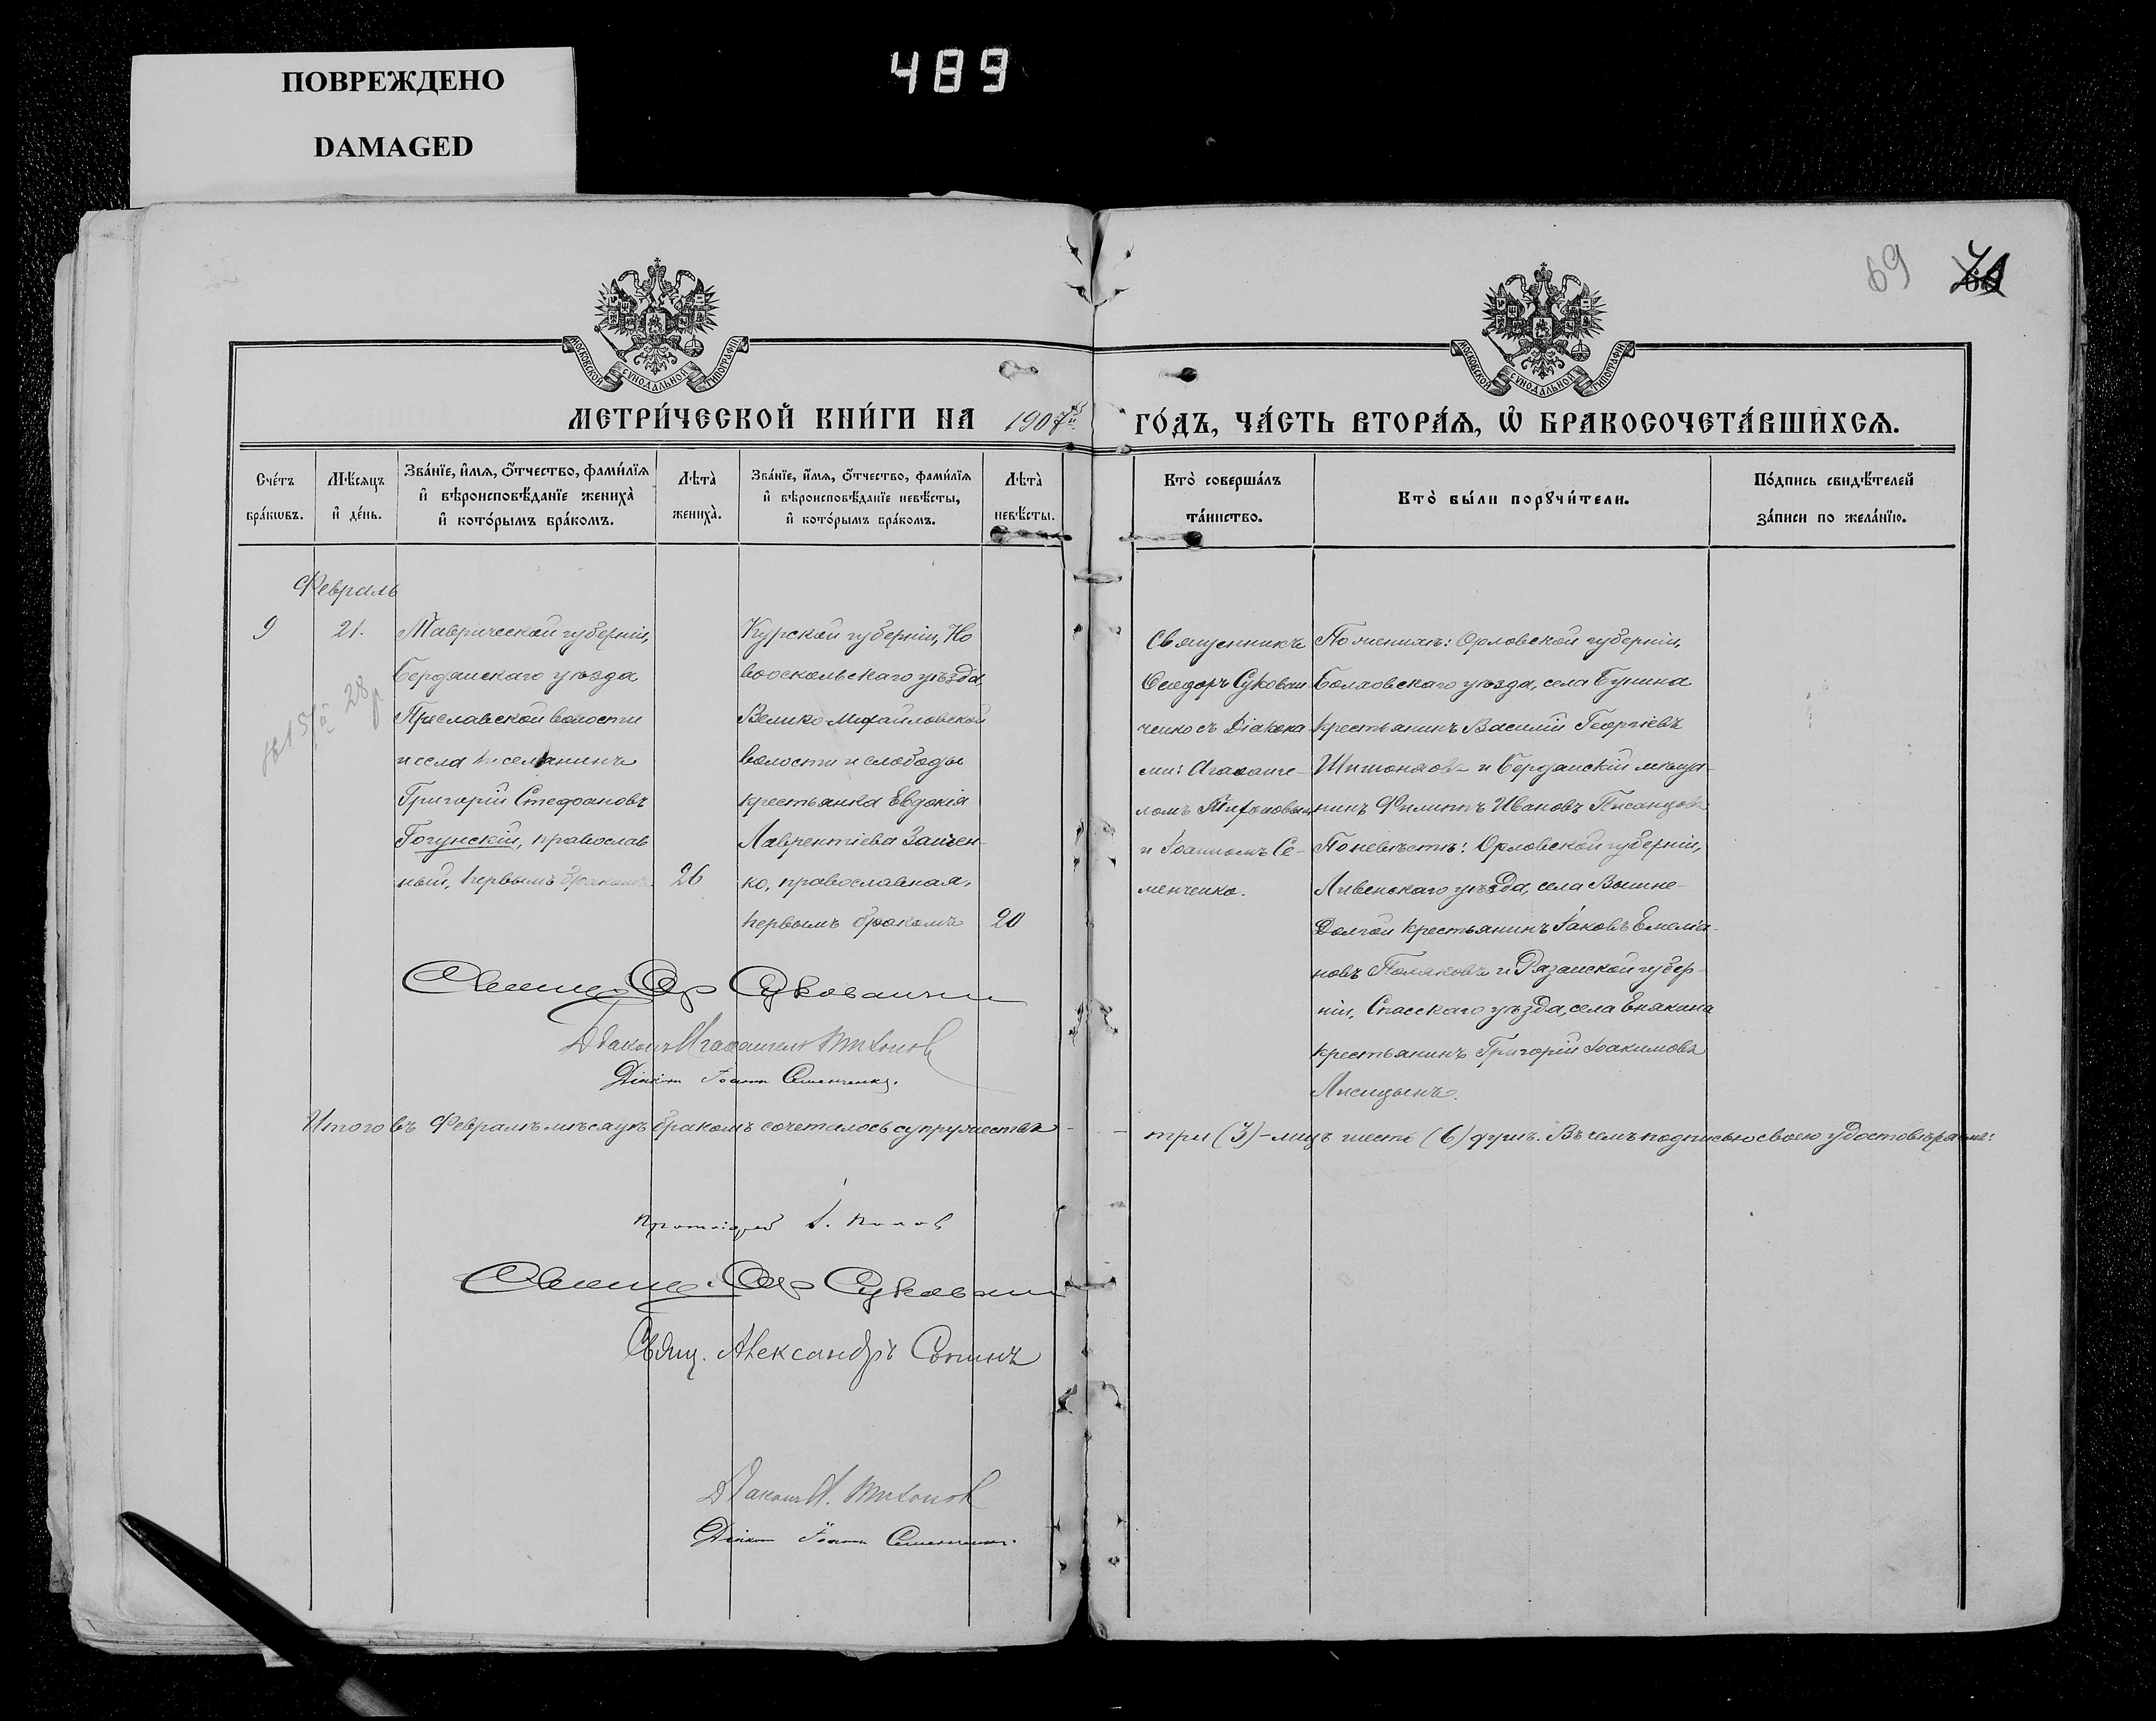 ПОВРЕЖДЕНО
DAMAGED
489
69
МОСКОВСКОЙ СУНОДАЛЬНОЙ ТИПОГРАФІИ
МОСКОВСКОЙ СУНОДАЛЬНОЙ ТИПОГРАФІИ
МЕТРИ́ЧЕСКОЙ КНИ́ГИ НА 1907й ГО́ДЪ, ЧА́СТЬ ВТОРА́Ѧ, Ѽ БРАКОСОЧЕТА́ВШИХСѦ.
Сче́тъ
бра́кѡвъ.
Мѣ́сяцъ
и҆ де́нь.
Зва́нїе, и҆́мѧ, ѻ҆́тчество, фами́лїѧ
и҆ вѣроисповѣ́данїе жениха̀
и҆ кото́рымъ бра́комъ.
Лѣта̀
жениха̀.
Зва́нїе, и҆́мѧ, ѻ҆́тчество, фами́лїѧ
и҆ вѣроисповѣ́данїе невѣ́сты,
и҆ кото́рымъ бра́комъ.
Лѣта̀
невѣ́сты.
Кто̀ соверша́лъ
та́инство.
Кто̀ бы́ли порꙋчи́тели.
По́дпись свидѣ́телей
за́писи по жела́нїю.
Февраль
9
21.
Таврической губерніи,
Бердянскаго уѣзда
Преславской волости
и села поселянинъ
Григорій Стефановъ
Гогунскій, православ
ный, первымъ бракомъ
26
Курской губерніи, Но
вооскольскаго уѣзда,
Велико-Михайловской
волости и слободы
крестьянка Евдокія
Лаврентіева Заичен-
ко, православная,
первымъ бракомъ
20
Священникъ
Ѳеодоръ Сукован
ченко съ Діакона
ми: Агаѳанге-
ломъ Тихоновым
и Іоанномъ Се-
менченко.
По женихѣ: Орловской губерніи,
Болховскаго уѣзда, села Бунина
крестьянинъ Василій Георгіевъ
и Бердянскій мѣща-
нинъ Филиппъ Ивановъ Писанцовъ
По невѣстѣ: Орловской губерніи,
Ливенскаго уѣзда, села Вышне-
Долгой крестьянинъ Іаковъ Емеліа-
новъ Поляковъ и Рязанской губер-
ніи, Спасскаго уѣзда, села Енякина
крестьянинъ Григорій Іоакимовъ
Лисицынъ.
Свящ. Ѳ Сукованченко
Діаконъ Агаѳангелъ Тихонов
Діакон Іоанн Семенченко.
Итого въ Февралѣ мѣсяцѣ бракомъ сочеталось супружествъ - - три (3) - лицъ шесть (6) душъ. Въ чемъ подписью своею удостовѣряемъ:
Протоіерей І. Попов
Свящ. Ѳ Сукованченко
Свящ. Александръ Сопинъ
Діаконъ А. Тихонов
Діакон Іоанн Семенченко.